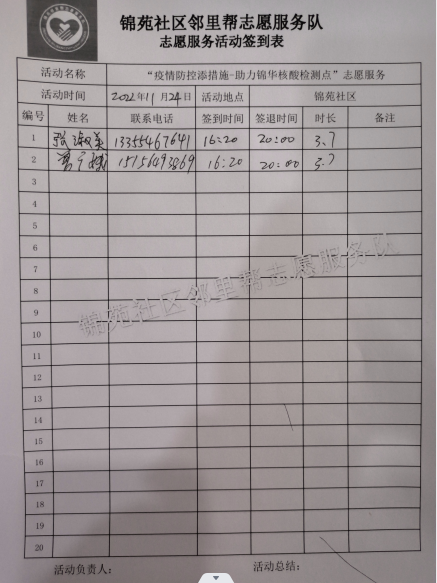 锦苑社区邻里帮志愿服务队
志愿服务活动签到表
活动名称 “疫情防控添措施-助力锦华核酸检测点”志愿服务
活动时间 2022年11月24日 活动地点 锦苑社区
编号 姓名 联系电话 签到时间 签退时间 时长 备注
1 张淑美 13355467641 16:20 20:00 3.7
2 15156493869 16:20 20:00 3.7
3
4
5
6
7
8
锦苑社区邻里帮志愿服务队
9
10
11
12
13
14
15
16
17
18
19
20
活动负责人: 活动总结: